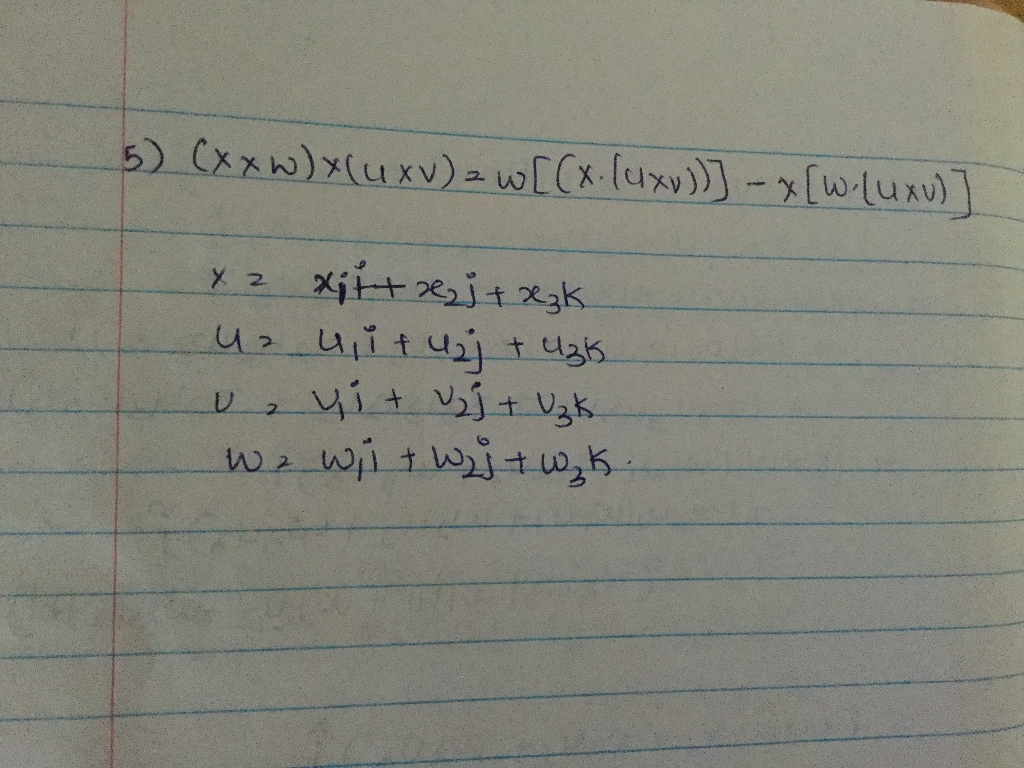 5) (x×w)×(u×v)=w[(x.(u×v))] - x[w.(u×v)]
x = x₁i + x₂j + x₃k
u = u₁i + u₂j + u₃k
v = v₁i + v₂j + v₃k
w = w₁i + w₂j + w₃k.